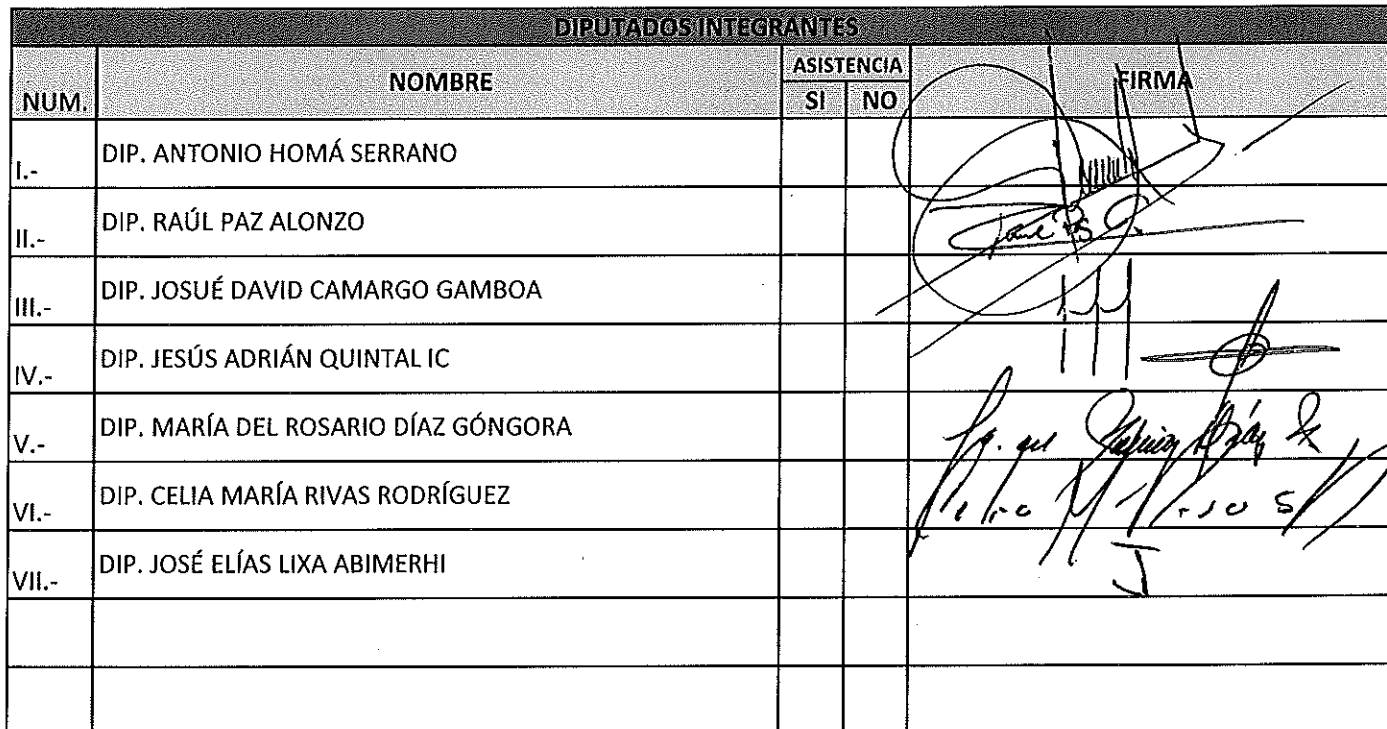 DIPUTADOS INTEGRANTES
NUM. NOMBRE ASISTENCIA FIRMA
SI NO
I.- DIP. ANTONIO HOMÁ SERRANO
II.- DIP. RAÚL PAZ ALONZO
III.- DIP. JOSUÉ DAVID CAMARGO GAMBOA
IV.- DIP. JESÚS ADRIÁN QUINTAL IC
V.- DIP. MARÍA DEL ROSARIO DÍAZ GÓNGORA
VI.- DIP. CELIA MARÍA RIVAS RODRÍGUEZ
VII.- DIP. JOSÉ ELÍAS LIXA ABIMERHI